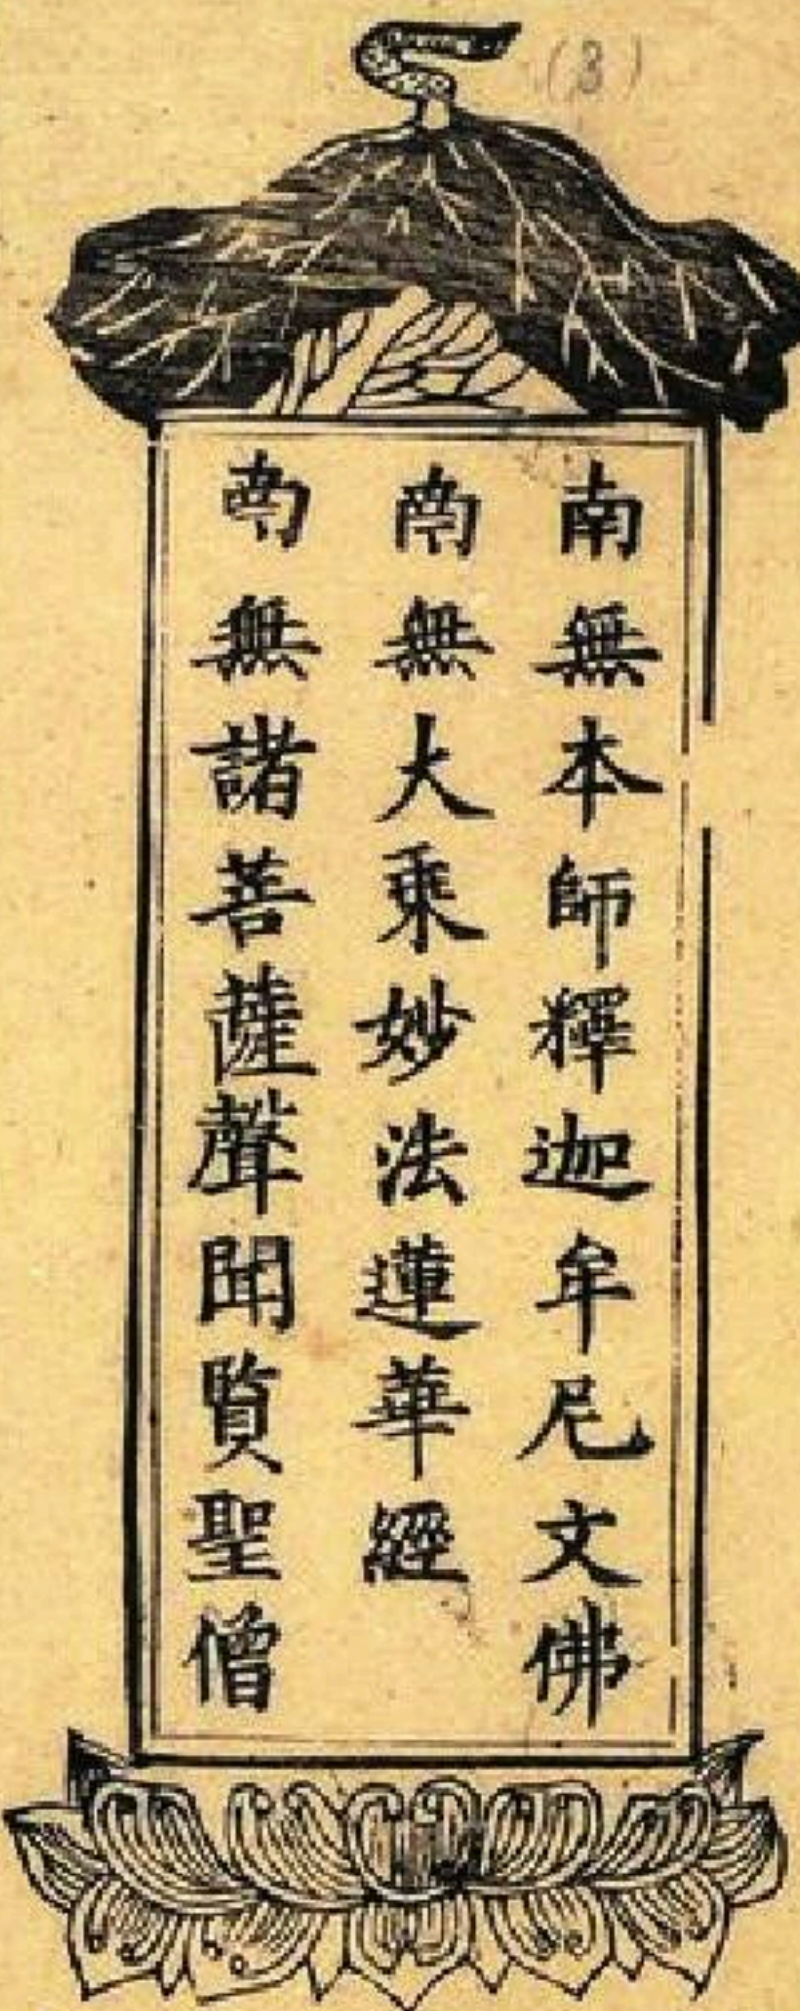 (3)
南無本師釋迦牟尼文佛
南無大乘妙法蓮華經
南無諸菩薩聲聞賢聖僧